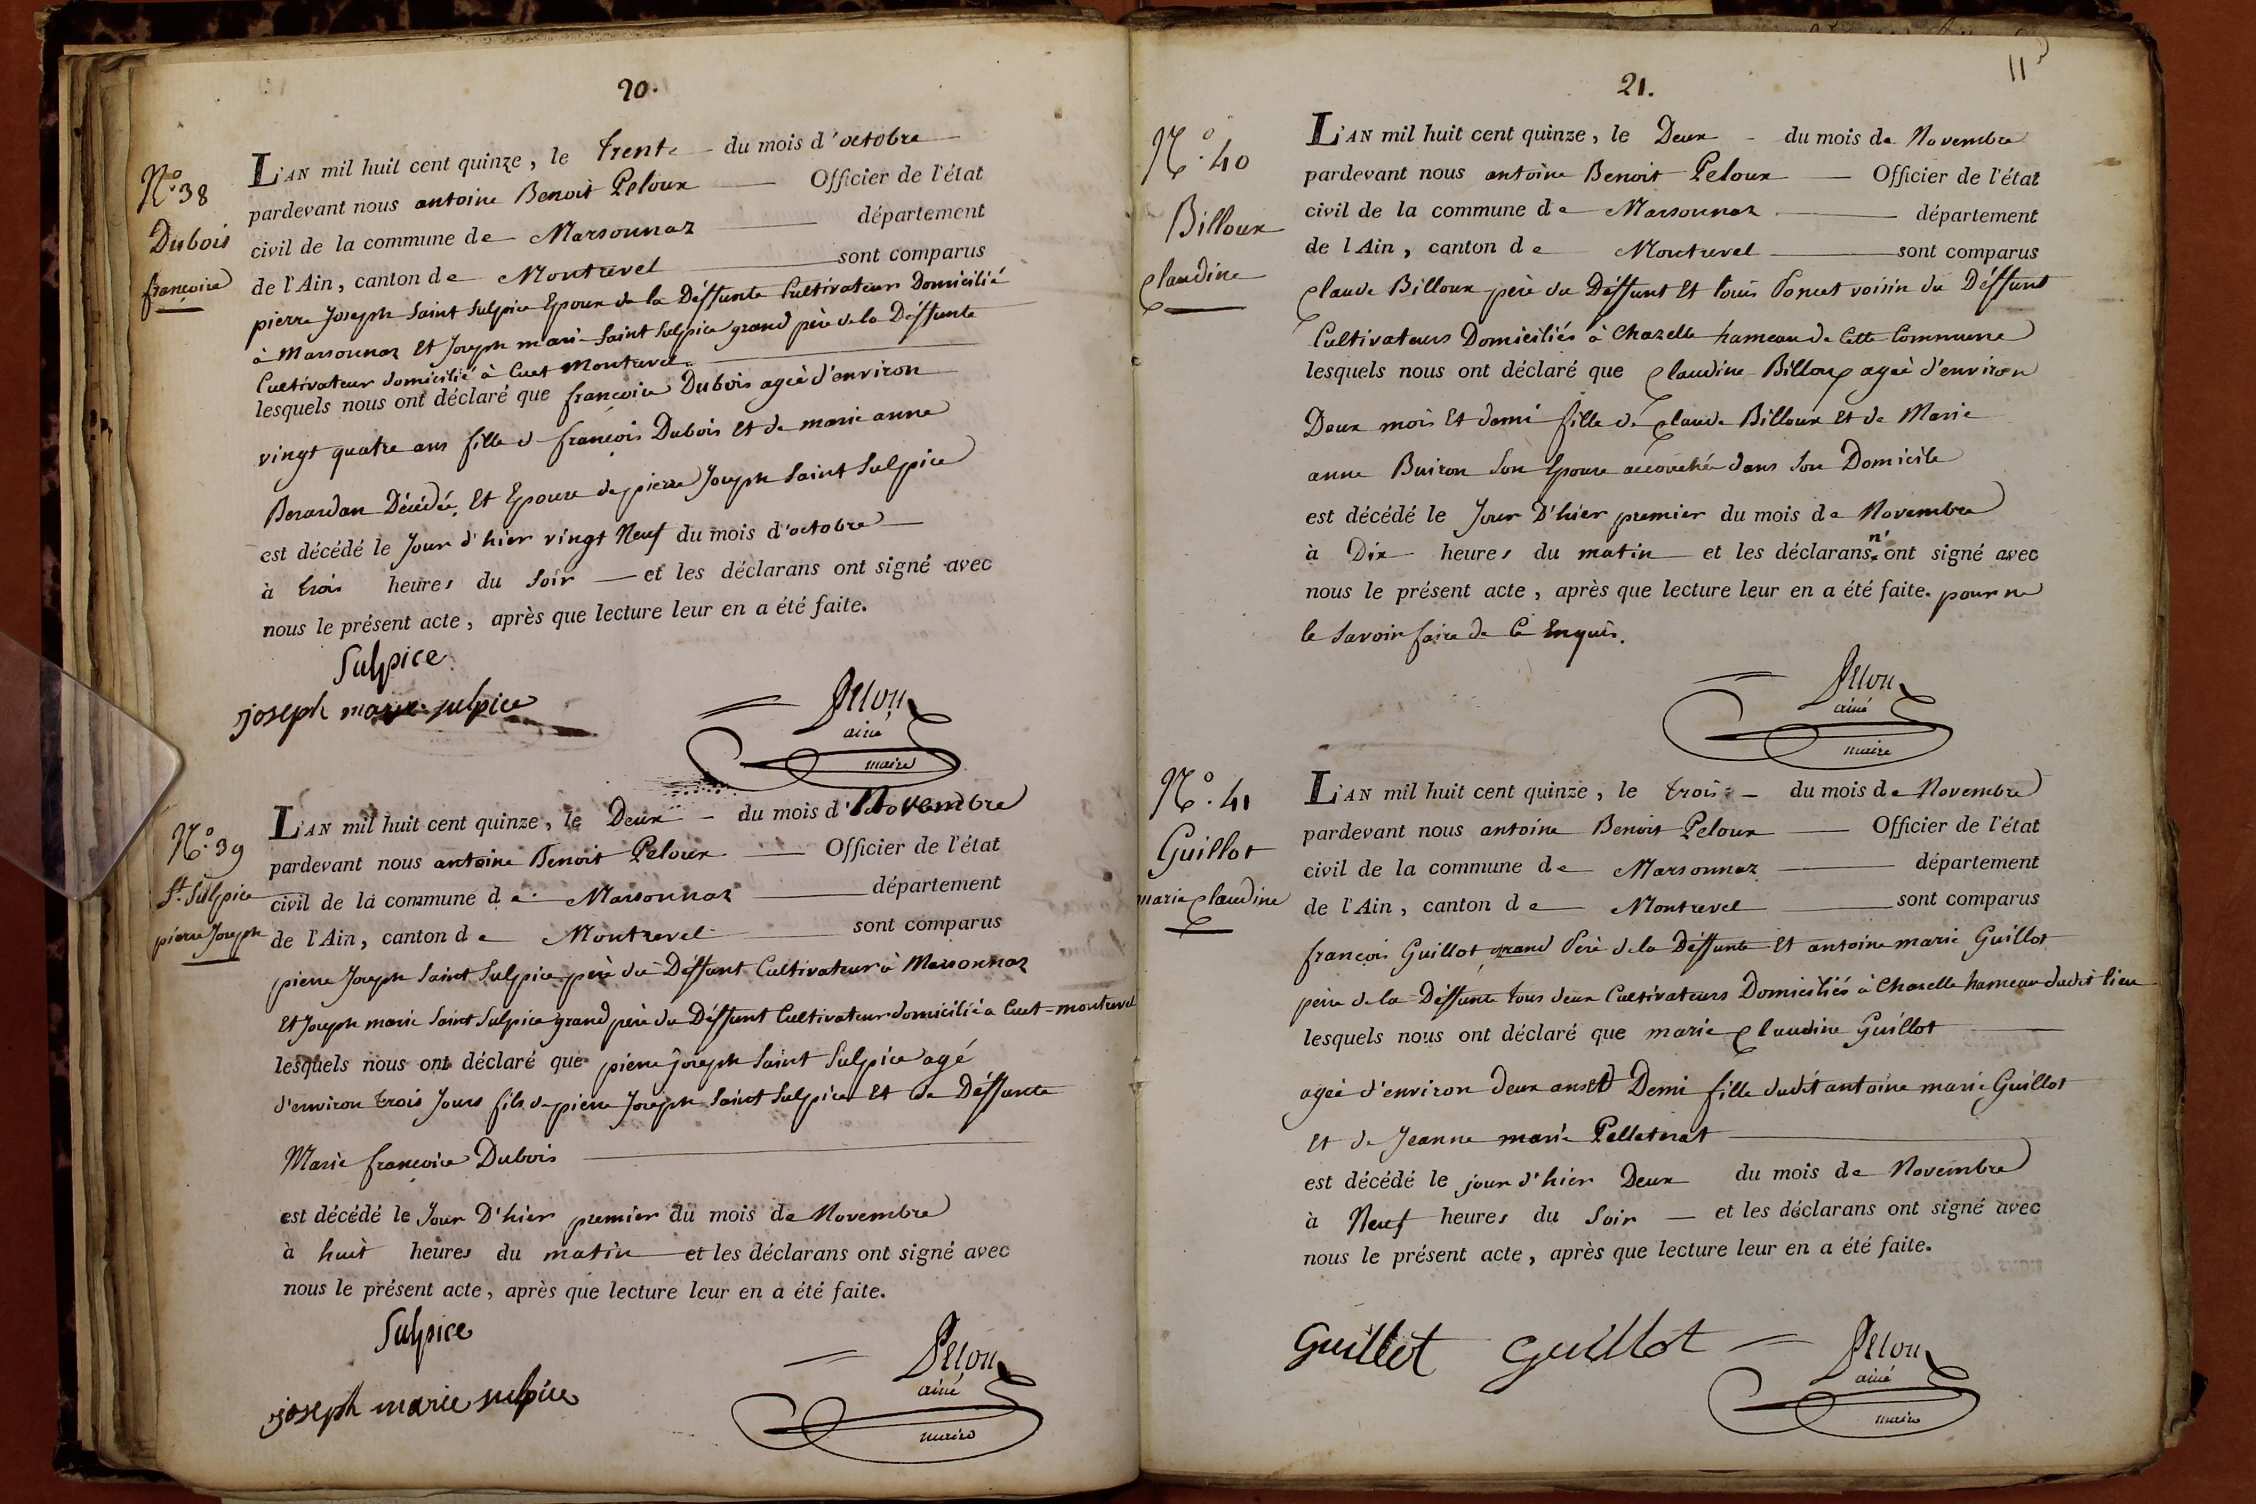 20.
N.º 38
Dubois
françoise
L'AN mil huit cent quinze, le trente du mois d'octobre
pardevant nous antoine Benoit Peloux Officier de l'état
civil de la commune de Marsonnaz département
de l'Ain, canton de Montrevel sont comparus
pierre Joseph Saint Sulpice Epoux de la Déffunte Cultivateur Domicilié
à Marsonnaz Et Joseph marie Saint Sulpice grand père de la Déffunte
Cultivateur domicilié à Cuet Montrevel.
lesquels nous ont déclaré que françoise Dubois ageé d'environ
vingt quatre ans fille d françois Dubois Et de marie anne
Berardan Décédée, Et Epouse de pierre Joseph Saint Sulpice
est décédé le Jour d'hier vingt Neuf du mois d'octobre
à trois heures du Soir et les déclarans ont signé avec
nous le présent acte, après que lecture leur en a été faite.
Sulpice
joseph marie sulpice
Pelou
ainé
maire
N.º 39
St. Sulpice
pierre Joseph
L'AN mil huit cent quinze, le Deux du mois d' Novembre
pardevant nous antoine Benoit Peloux Officier de l'état
civil de la commune de Marsonnaz département
de l'Ain, canton de Montrevel sont comparus
pierre Joseph Saint Sulpice père du Déffunt Cultivateur à Marsonnaz
Et Joseph marie Saint Sulpice grand père du Déffunt Cultivateur domicilié a Cuet-montrevel
lesquels nous ont déclaré que pierre Joseph Saint Sulpice agé
d'environ trois Jours fils de pierre Joseph Saint Sulpice Et de Déffunte
Marie françoise Dubois
est décédé le Jour D'hier premier du mois de Novembre
à huit heures du matin et les déclarans ont signé avec
nous le présent acte, après que lecture leur en a été faite.
Sulpice
joseph marie sulpice
Pelou
ainé
maire
21.
11
N.º 40
Billoux
Claudine
L'AN mil huit cent quinze, le Deux du mois de Novembre
pardevant nous antoine Benoit Peloux Officier de l'état
civil de la commune de Marsonnaz département
de l'Ain, canton de Montrevel sont comparus
Claude Billoux père du Déffunt Et louis Poncet voisin du Déffunt
Cultivateurs Domiciliés à Chazelle hameau de Cette Commune
lesquels nous ont déclaré que Claudine Billoux ageé d'environ
Deux mois Et demi fille de Claude Billoux Et de Marie
anne Buiron Son Epouse accouchée dans Son Domicile
est décédé le Jour D'hier premier du mois de Novembre
à Dix heures du matin et les déclarans n'ont signé avec
nous le présent acte, après que lecture leur en a été faite. pour ne
le Savoir faire de Ce Enquis.
Pelou
ainé
maire
N.º 41
Guillot
marie Claudine
L'AN mil huit cent quinze, le trois du mois de Novembre
pardevant nous antoine Benoit Peloux Officier de l'état
civil de la commune de Marsonnaz département
de l'Ain, canton de Montrevel sont comparus
françois Guillot grand Père de la Déffunte Et antoine marie Guillot
père de la Déffunte tous deux Cultivateurs Domiciliés à Chazelle hameau dudit lieu
lesquels nous ont déclaré que marie Claudine Guillot
ageé d'environ deux ans Et Demi fille dudit antoine marie Guillot
Et de Jeanne marie Pelletrat
est décédé le jour d'hier Deux du mois de Novembre
à Neuf heures du Soir et les déclarans ont signé avec
nous le présent acte, après que lecture leur en a été faite.
Guillot Guillot
Pelou
ainé
maire